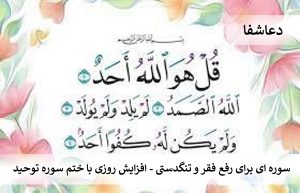 دعاشفا
بسم الله الرحمن الرحيم
قُلْ هُوَ ٱللَّهُ أَحَدٌ ۝١
ٱللَّهُ ٱلصَّمَدُ ۝٢ لَمْ يَلِدْ وَلَمْ يُولَدْ ۝٣
وَلَمْ يَكُن لَّهُۥ كُفُوًا أَحَدٌۢ ۝٤
سوره ای برای رفع فقر و تنگدستی - افزایش روزی با ختم سوره توحید